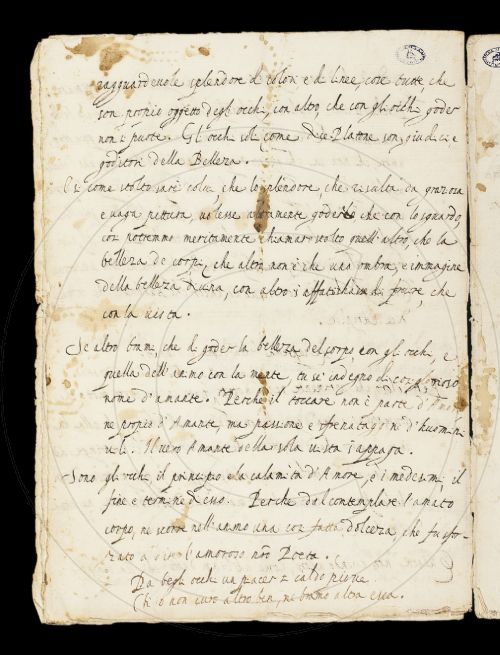 ragguardevole splendore di colori e di linee, cose tutte, che
son proprio oggetto degli occhi, con altro, che con gli occhi goder
non si puote. Gli occhi soli come dice Platone son giudici e
goditori della Bellezza.
Et si come stolto saria colui che lo splendore, che risulta da graziosa
e vaga pittura, volesse altramente goderlo che con lo sguardo,
così potremmo meritamente chiamar stolto quell'altro, che la
bellezza de corpi, che altro non è che una ombra, e immagine
della bellezza divina, con altro s'affatichasse di fruire, che
con la vista.
Se altro brami, che di goder la bellezza del corpo con gli occhi, e
quella dell'animo con la mente, tu se' indegno di così glorioso
nome d'amante. Perche il toccare non è parte d'Amo
ne proprio d'Amante, ma passione e sfrenataggine d'huomini
vili. Il vero Amante della sola vista s'appaga.
Sono gli occhi il principio e la calamita d'Amore, e i medesimi il
fine e termine d'esso. Perche dal contemplare l'amato
corpo, ne scorre nell'animo una così fatta dolcezza, che fu sfor-
zato a dire l'amoroso nro Poeta.
Da begli occhi un piacer si caldo piove
Ch'io non curo altro ben, ne bramo altra esca.